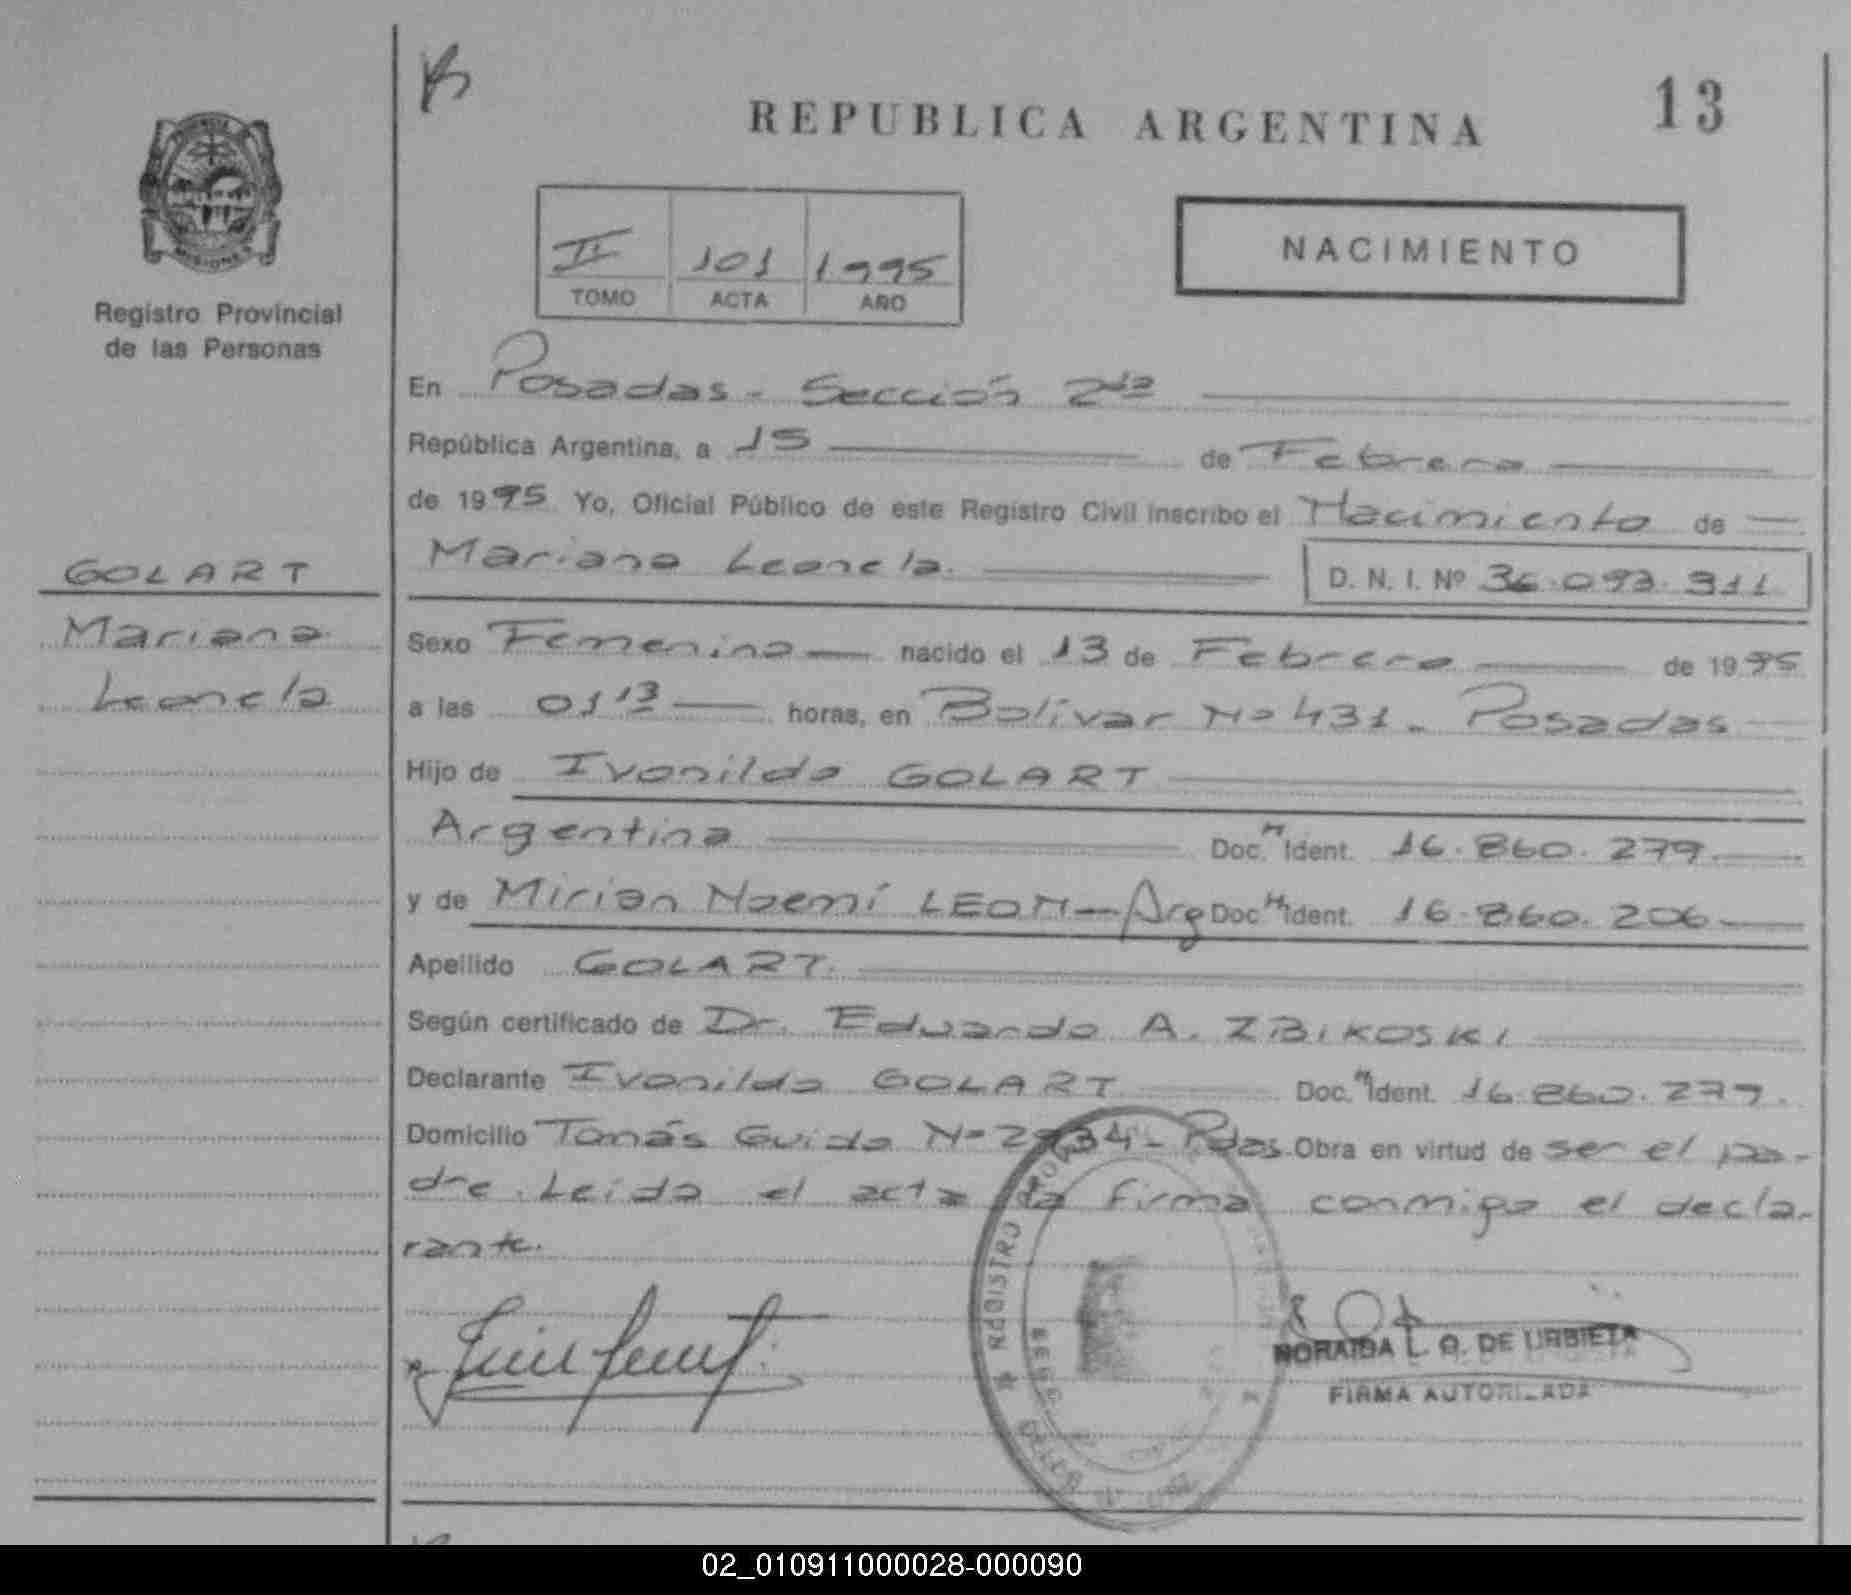 REPUBLICA ARGENTINA
13
II 101 1995
TOMO ACTA AÑO
NACIMIENTO
Registro Provincial
de las Personas
En Posadas - Sección 2da
República Argentina, a 15 de Febrero
de 1995 Yo, Oficial Público de este Registro Civil inscribo el Nacimiento de
Mariana Leonela. D. N. I. Nº 36.093.311
GOLART
Mariana
Leonela
Sexo Femenino nacido el 13 de Febrero de 1995
a las 01 13 horas, en Bolivar Nº 431 - Posadas
Hijo de Ivonildo GOLART
Argentina Doc. N Ident. 16.860.279
y de Mirian Noemí LEON - Arg Doc N Ident. 16.860.206
Apellido GOLART.
Según certificado de Dr. Eduardo A. ZBIKOSKI
Declarante Ivonildo GOLART Doc. N Ident. 16.860.279.
Domicilio Tomás Guido Nº - Pdas. Obra en virtud de ser el pa-
dre. Leida el acta la firma conmigo el decla-
rante.
REGISTRO
NORAIDA L. O. DE URBIETA
FIRMA AUTORIZADA
02_010911000028-000090